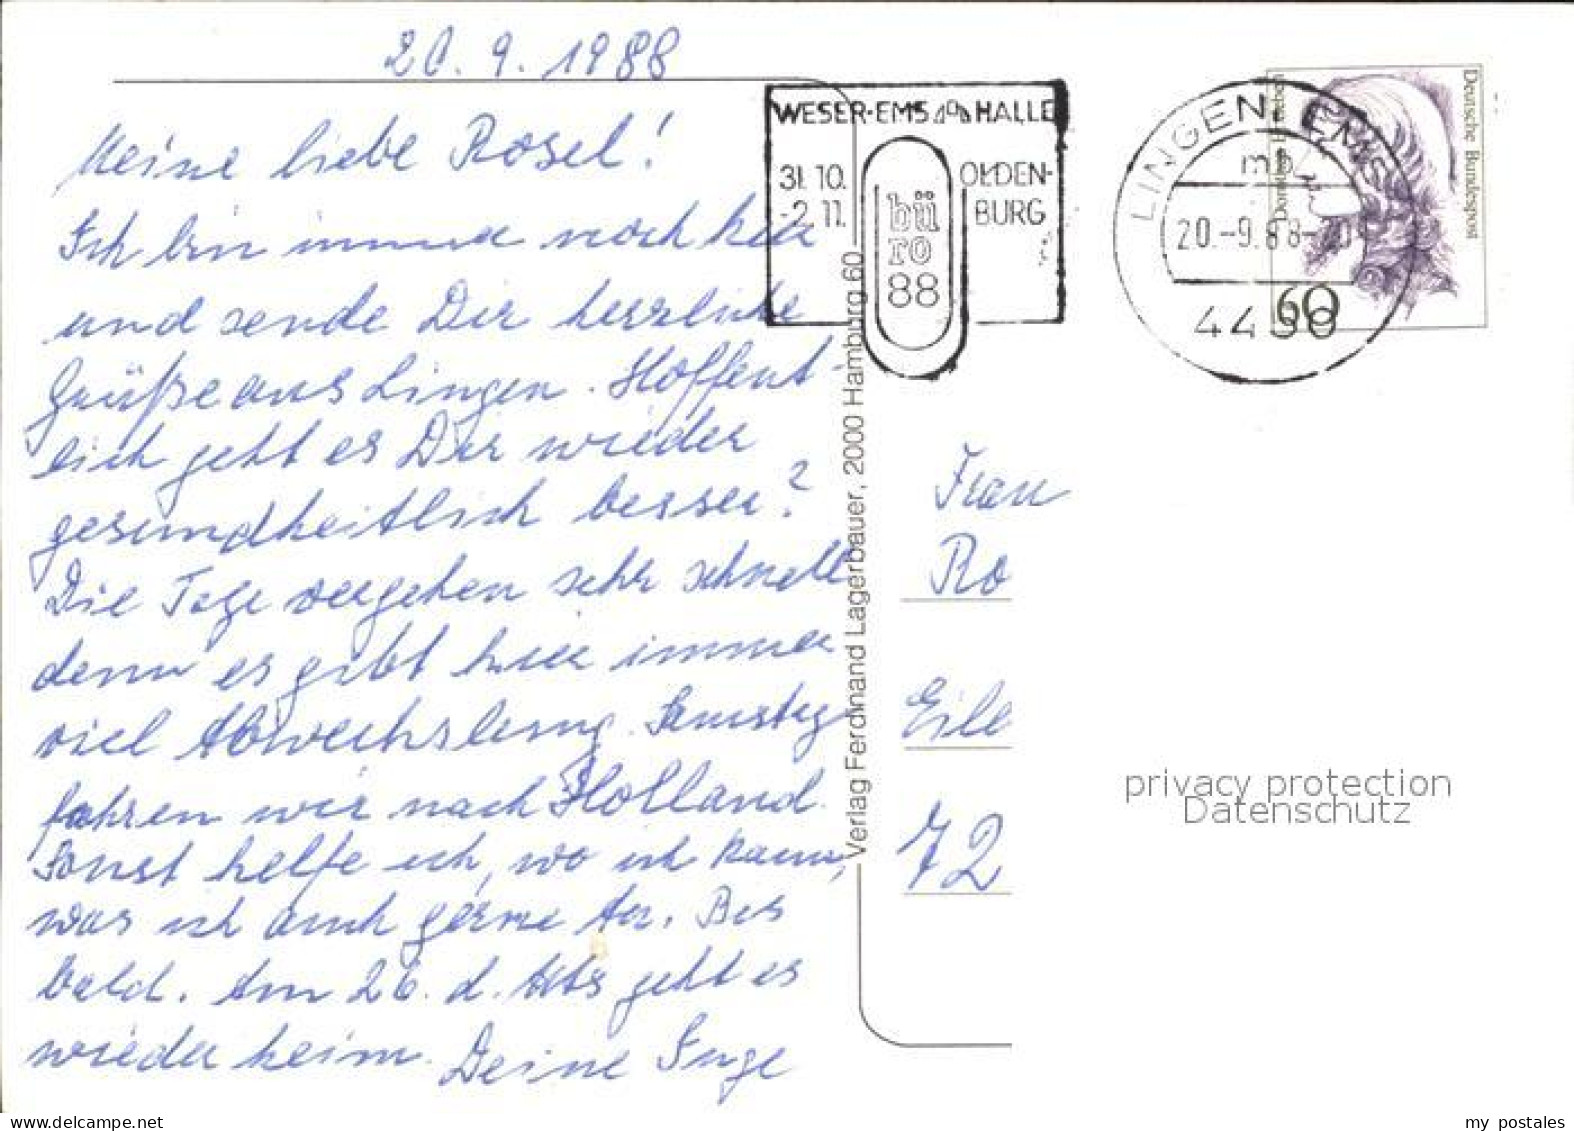 20. 9. 1988
Meine liebe Rosel!
Ich bin immer noch hier
und sende Dir herzliche
Grüße aus Lingen. Hoffent-
lich geht es Dir wieder
gesundheitlich besser?
Die Tage vergehen sehr schnell
denn es gibt hier immer
viel Abwechslung. Samstag
fahren wir nach Holland.
Sonst helfe ich, wo ich kann,
was ich auch gerne tu. Bis
bald. Am 26. d. Mts geht es
wieder heim. Deine Inge
WESER-EMS HALLE
31. 10.
-2. 11.
OLDEN-
BURG
bü
ro
88
LINGEN, EMS
mb
20.-9.88-
4450
Deutsche Bundespost
60
Verlag Ferdinand Lagerbauer, 2000 Hamburg 60
Frau
Ro
Eile
72
privacy protection
Datenschutz
my postales